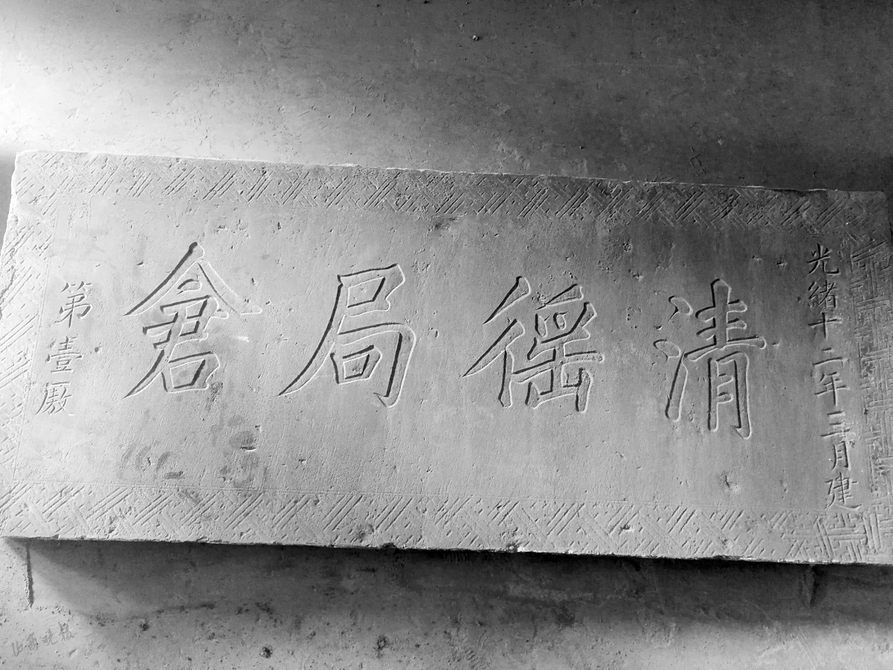 光緒十二年三月建
清徭局倉
第壹厫